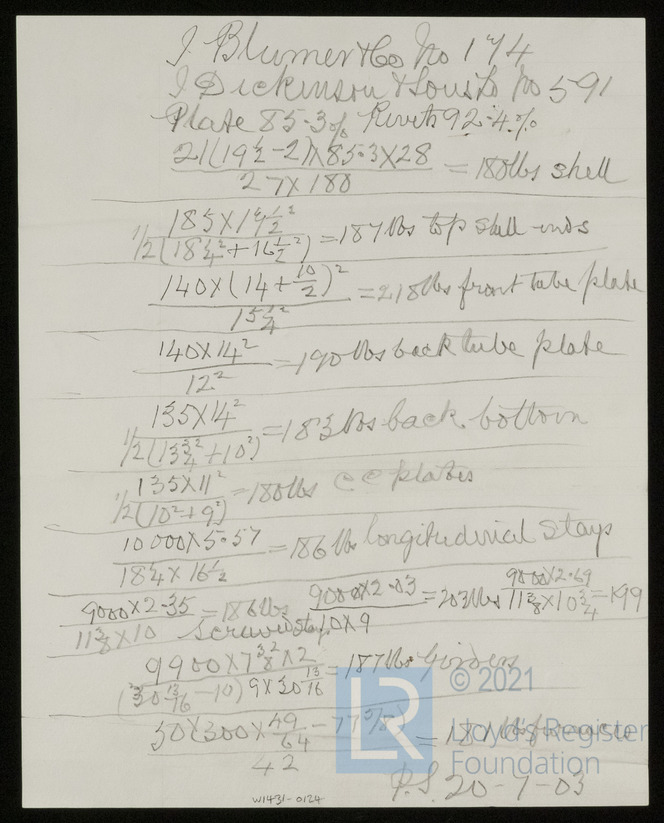 J Blumer & Co No 174
J Dickinson & Sons Ld No 591
Plate 85.3% Rivets 92.4%
21(19½-2)×85.3×28 / 27×180 = 180lbs shell
185×19½² / ½(18¼²+16½²) = 187lbs top shell ends
140×(14+10/2)² / 15¼² = 218lbs front tube plate
140×14² / 12² = 190lbs back tube plate
135×14² / ½(13¾²+10²) = 183lbs back bottom
135×11² / ½(10²+9²) = 180lbs c c plates
10000×5.57 / 18¼×16½ = 186lbs longitudinal stays
9000×2.35 / 11⅜×10 = 186lbs 9000×2.03 / 10×9 = 203lbs 9000×2.69 / 11⅜×10¾ = 199
screw stays
9900×7⅜²×2 / (30 13/16-10) 9×30 13/16 = 187lbs Girders
50(300×49/64 - 77 5/8) / 42 = furnace
P.S. 20-1-03
W1431-0124
LR
© 2021
Lloyd's Register
Foundation